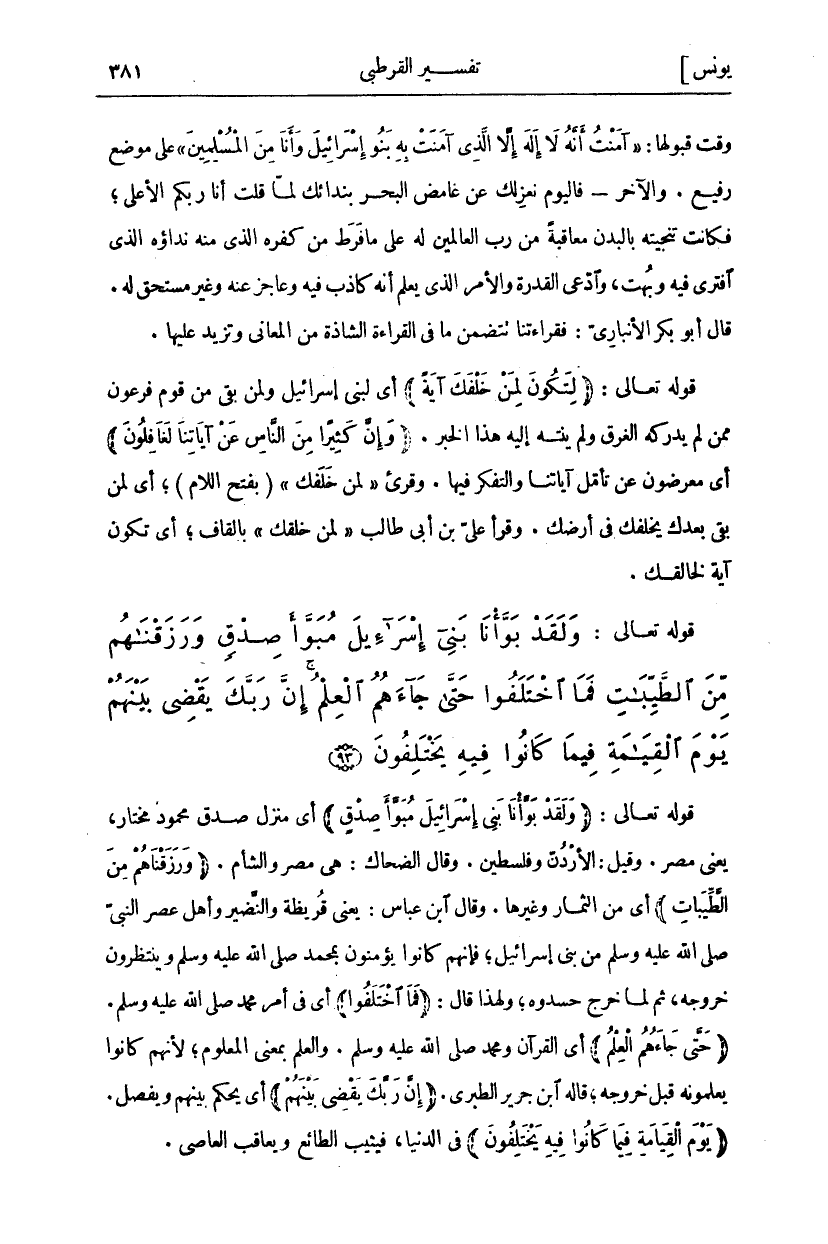 يونس] تفســـير القرطبى ٣٨١
وقت قبولها: «آمَنْتُ أَنَّهُ لَا إِلَهَ إِلَّا الَّذِى آمَنَتْ بِهِ بَنُو إِسْرَائِيلَ وَأَنَا مِنَ الْمُسْلِمِينَ» على موضع
رفيع . والآخر — فاليوم نعزلك عن غامض البحر بندائك لمّا قلت أنا ربكم الأعلى ؛
فكانت تنجيته بالبدن معاقبةً من رب العالمين له على مافَرَط من كفره الذى منه نداؤه الذى
آفترى فيه وبُهت، وآدّعى القدرة والأمر الذى يعلم أنه كاذب فيه وعاجز عنه وغير مستحق له .
قال أبو بكر الأنبارىّ : فقراءتنا تتضمن ما فى القراءة الشاذة من المعانى وتزيد عليها .
قوله تعـالى : ﴿ لِتَكُونَ لِمَنْ خَلْفَكَ آيَةً ﴾ أى لبنى إسرائيل ولمن بقى من قوم فرعون
ممن لم يدركه الغرق ولم ينتـه إليه هذا الخبر . ﴿ وَإِنَّ كَثِيرًا مِنَ النَّاسِ عَنْ آيَاتِنَا لَغَافِلُونَ ﴾
أى معرضون عن تأمّل آياتنـا والتفكر فيها . وقرئ « لمن خَلَفك » ( بفتح اللام ) ؛ أى لمن
بقى بعدك يخلفك فى أرضك . وقرأ علىّ بن أبى طالب « لمن خلقك » بالقاف ؛ أى تكون
آية لخالقـك .
قوله تعـالى : وَلَقَدْ بَوَّأْنَا بَنِىٓ إِسْرَـٰٓءِيلَ مُبَوَّأَ صِدْقٍ وَرَزَقْنَـٰهُم
مِّنَ ٱلطَّيِّبَـٰتِ فَمَا ٱخْتَلَفُوا حَتَّىٰ جَآءَهُمُ ٱلْعِلْمُ ۚ إِنَّ رَبَّكَ يَقْضِى بَيْنَهُمْ
يَوْمَ ٱلْقِيَـٰمَةِ فِيمَا كَانُوا فِيهِ يَخْتَلِفُونَ ﴿٩٣﴾
قوله تعـالى : ﴿ وَلَقَدْ بَوَّأْنَا بَنِى إِسْرَائِيلَ مُبَوَّأَ صِدْقٍ ﴾ أى منزل صـدق محمود مختار،
يعنى مصر . وقيل: الأرْدُنّ وفلسطين . وقال الضحاك : هى مصر والشأم . ﴿ وَرَزَقْنَاهُمْ مِنَ
الطَّيِّبَاتِ ﴾ أى من الثمـار وغيرها . وقال آبن عباس : يعنى قُريظة والنَّضير وأهل عصر النبىّ
صلى الله عليه وسلم من بنى إسرائيل؛ فإنهم كانوا يؤمنون بمحمد صلى الله عليه وسلم وينتظرون
خروجه، ثم لمـا خرج حسدوه؛ ولهذا قال : ﴿فَمَا ٱخْتَلَفُوا﴾ أى فى أمر محمد صلى الله عليه وسلم.
﴿ حَتَّى جَاءَهُمُ الْعِلْمُ ﴾ أى القرآن ومحمد صلى الله عليه وسلم . والعلم بمعنى المعلوم؛ لأنهم كانوا
يعلمونه قبل خروجه ؛ قاله آبن جرير الطبرى. ﴿ إِنَّ رَبَّكَ يَقْضِى بَيْنَهُمْ ﴾ أى يحكم بينهم ويفصل.
﴿ يَوْمَ الْقِيَامَةِ فِيمَا كَانُوا فِيهِ يَخْتَلِفُونَ ﴾ فى الدنيا، فيثيب الطائع ويعاقب العاصى .